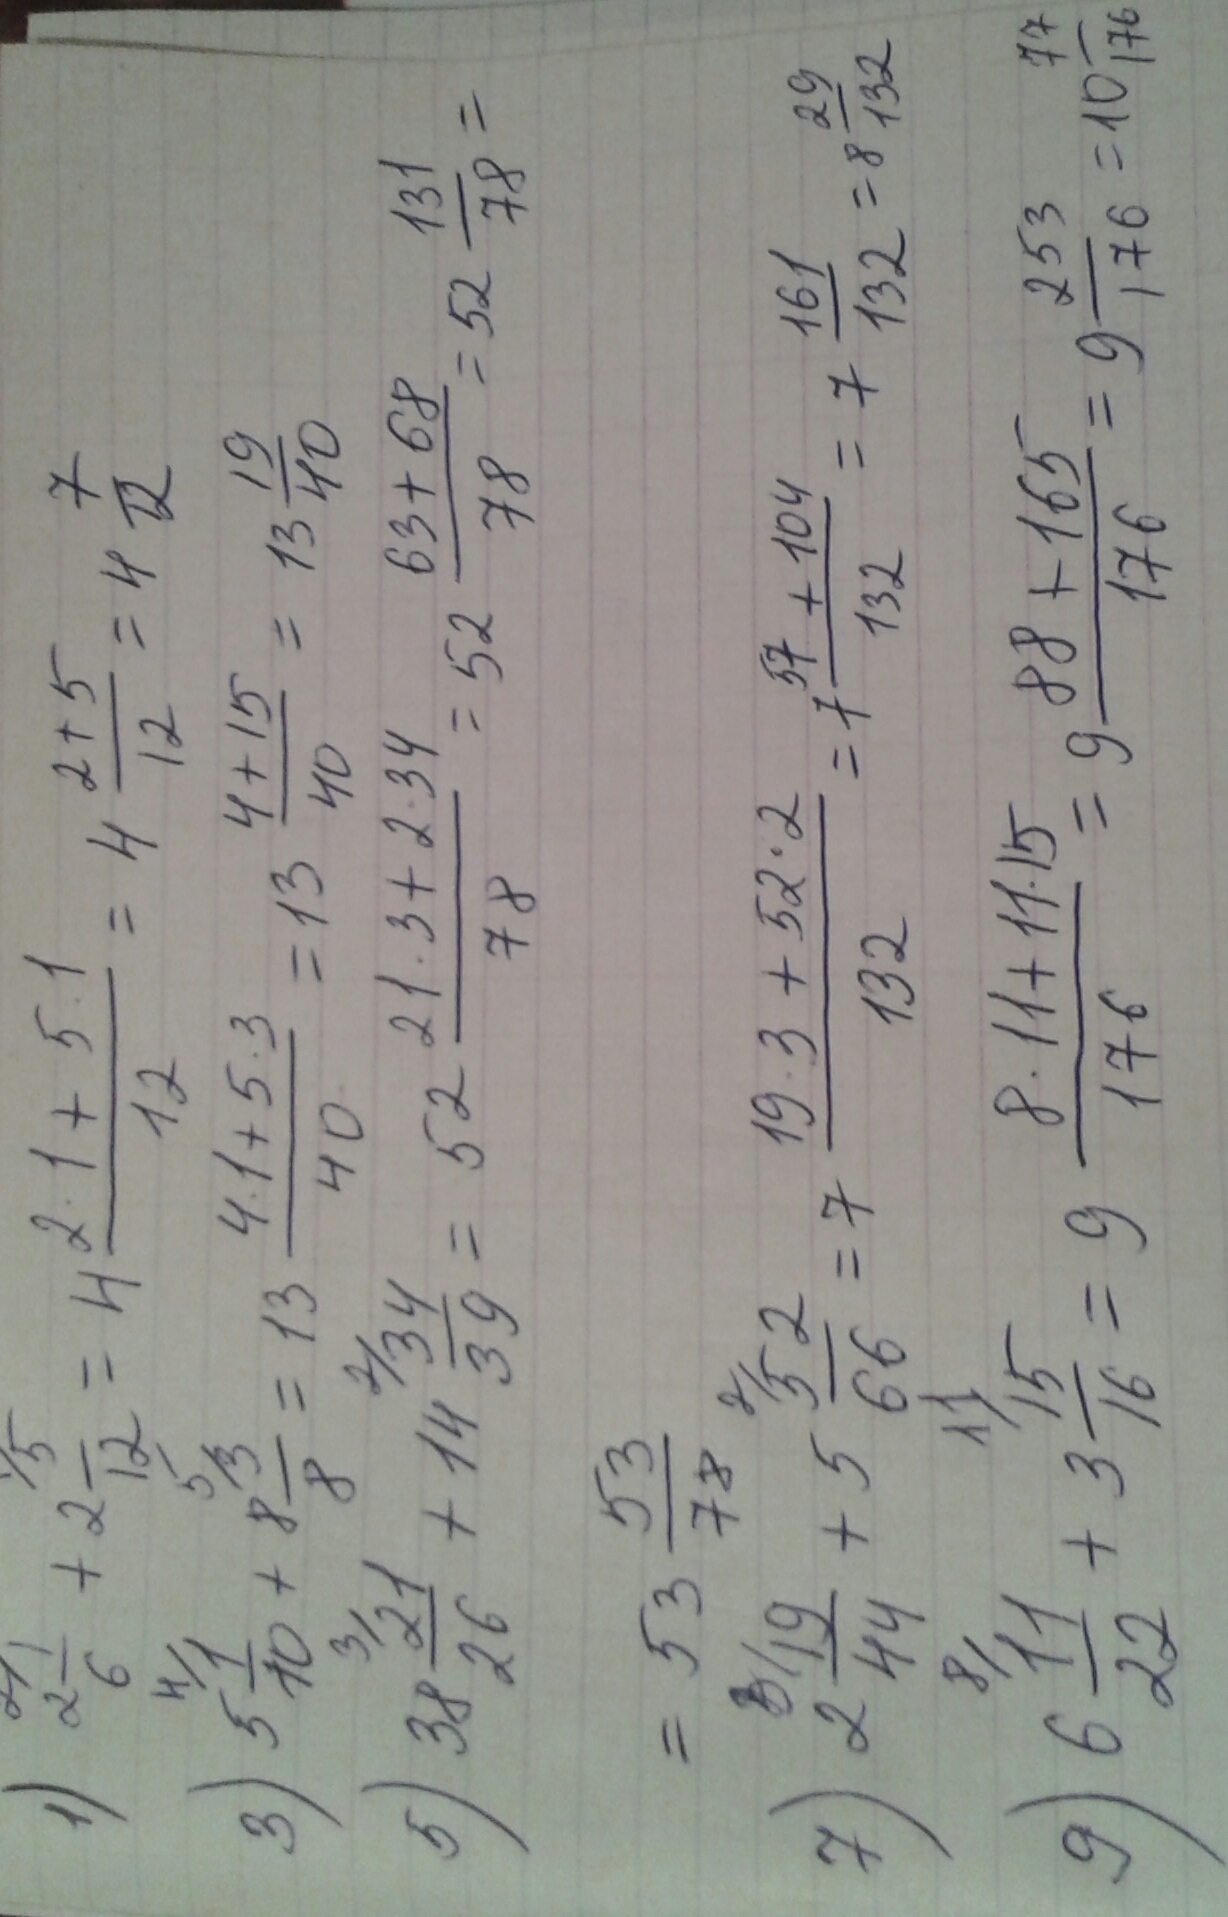 1) 2 2/1/6 + 2 1/5/12 = 4 2·1+5·1/12 = 4 2+5/12 = 4 7/12
3) 5 4/1/10 + 8 5/3/8 = 13 4·1+5·3/40 = 13 4+15/40 = 13 19/40
5) 38 3/21/26 + 14 2/34/39 = 52 21·3+2·34/78 = 52 63+68/78 = 52 131/78 =
= 53 53/78
7) 2 3/19/44 + 5 2/52/66 = 7 19·3+52·2/132 = 7 57+104/132 = 7 161/132 = 8 29/132
9) 6 8/11/22 + 3 11/15/16 = 9 8·11+11·15/176 = 9 88+165/176 = 9 253/176 = 10 77/176